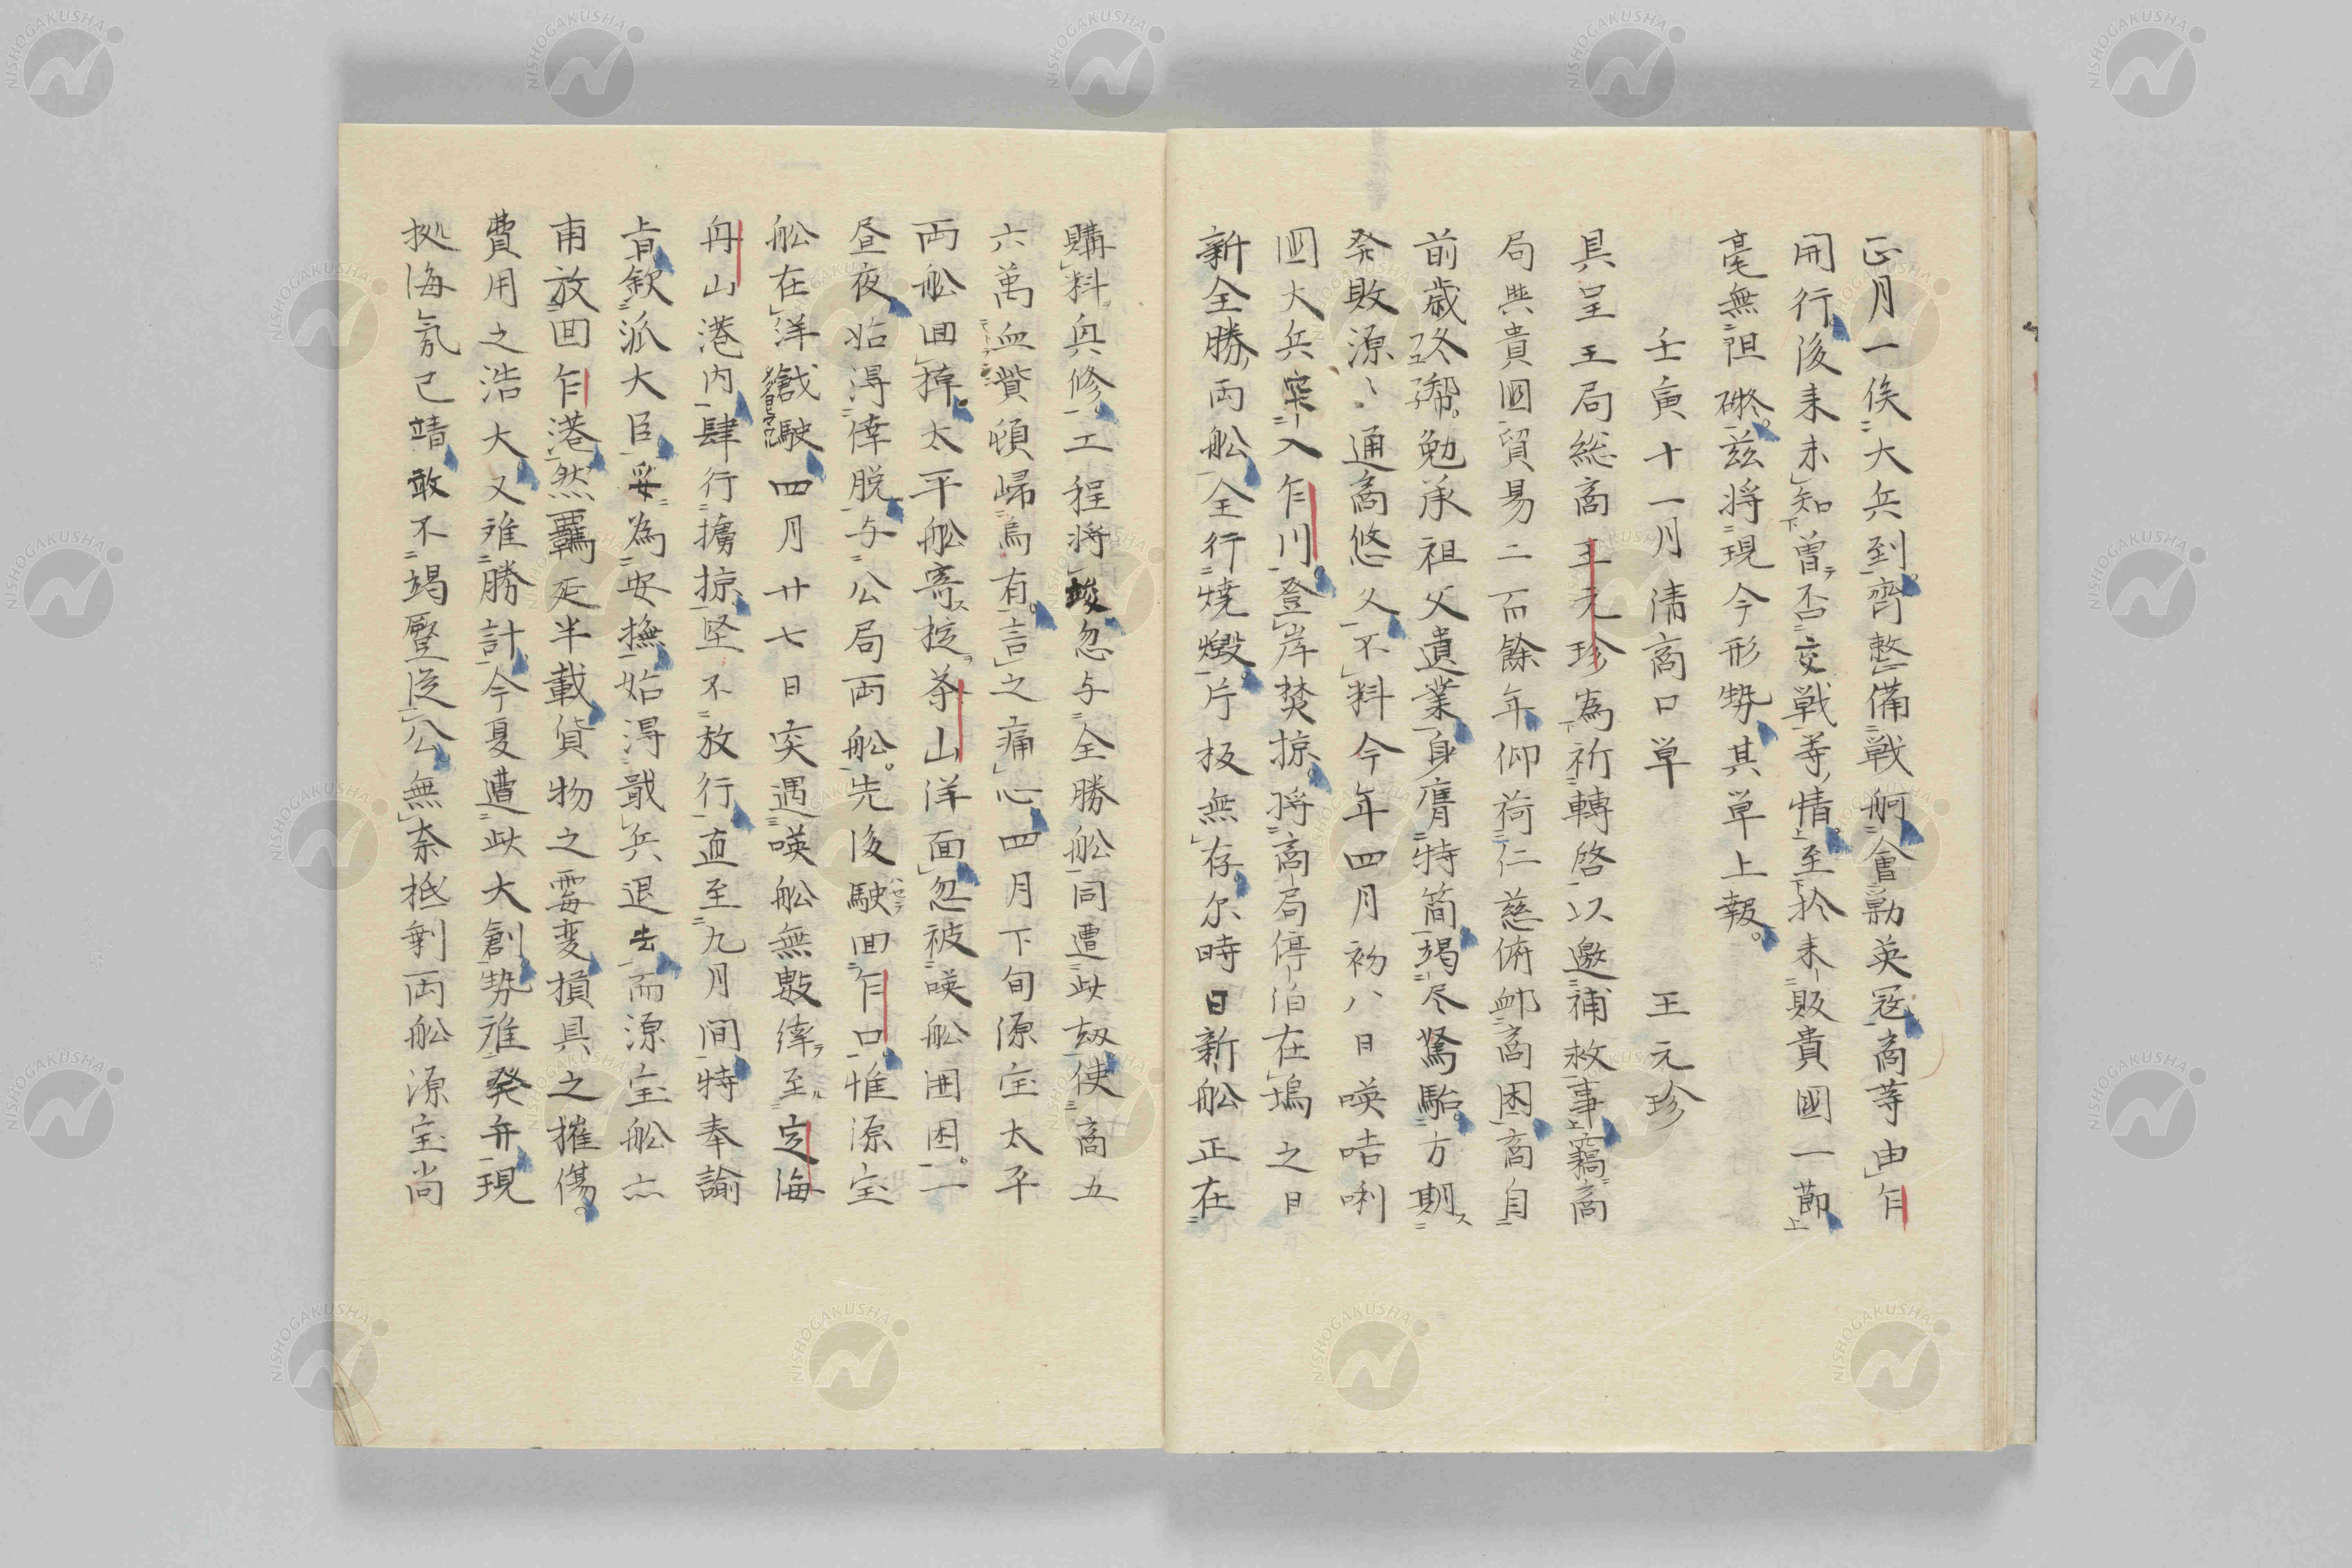 正月一俟大兵到齊整備戦舸會勦英冦商等由乍
開行後来未知曽否交戦等情至於来販貴國一節
毫無阻礙茲将現今形勢其単上報
壬寅十一月清商口単　王元珍
具呈王局総商王元珍為祈轉啓以邀補救事竊商
局與貴國貿易二百餘年仰荷仁慈俯衈商困商自
前歳冬幣勉承祖父遺業身膺特簡竭尽駑駘方期
発敗源〻通商悠久不料今年四月初八日暎咭唎
國大兵突入乍川登岸焚掠将商局停泊在塢之日
新全勝両舩全行焼燬片板無存尔時日新舩正在
購料興修工程将竣忽与全勝舩同遭此劫使商五
六萬血貲頓歸烏有言之痛心四月下旬源宝太平
両舩回掉太平舩寄椗茶山洋面忽被暎舩囲困一
昼夜始得倖脱与公局両舩先後駛回乍口惟源宝
舩在洋戧駛四月廿七日突遇暎舩無数𦄂至定海
舟山港内肆行擄掠堅不放行直至九月間特奉諭
旨欽派大臣妥為安撫始得戢兵退去而源宝舩亦
甫放回乍港然羈延半載貨物之霉変損具之摧傷
費用之浩大又难勝計今夏遭此大創勢难発弁現
拠海氛已靖敢不竭壓従公無奈抵剰両舩源宝尚